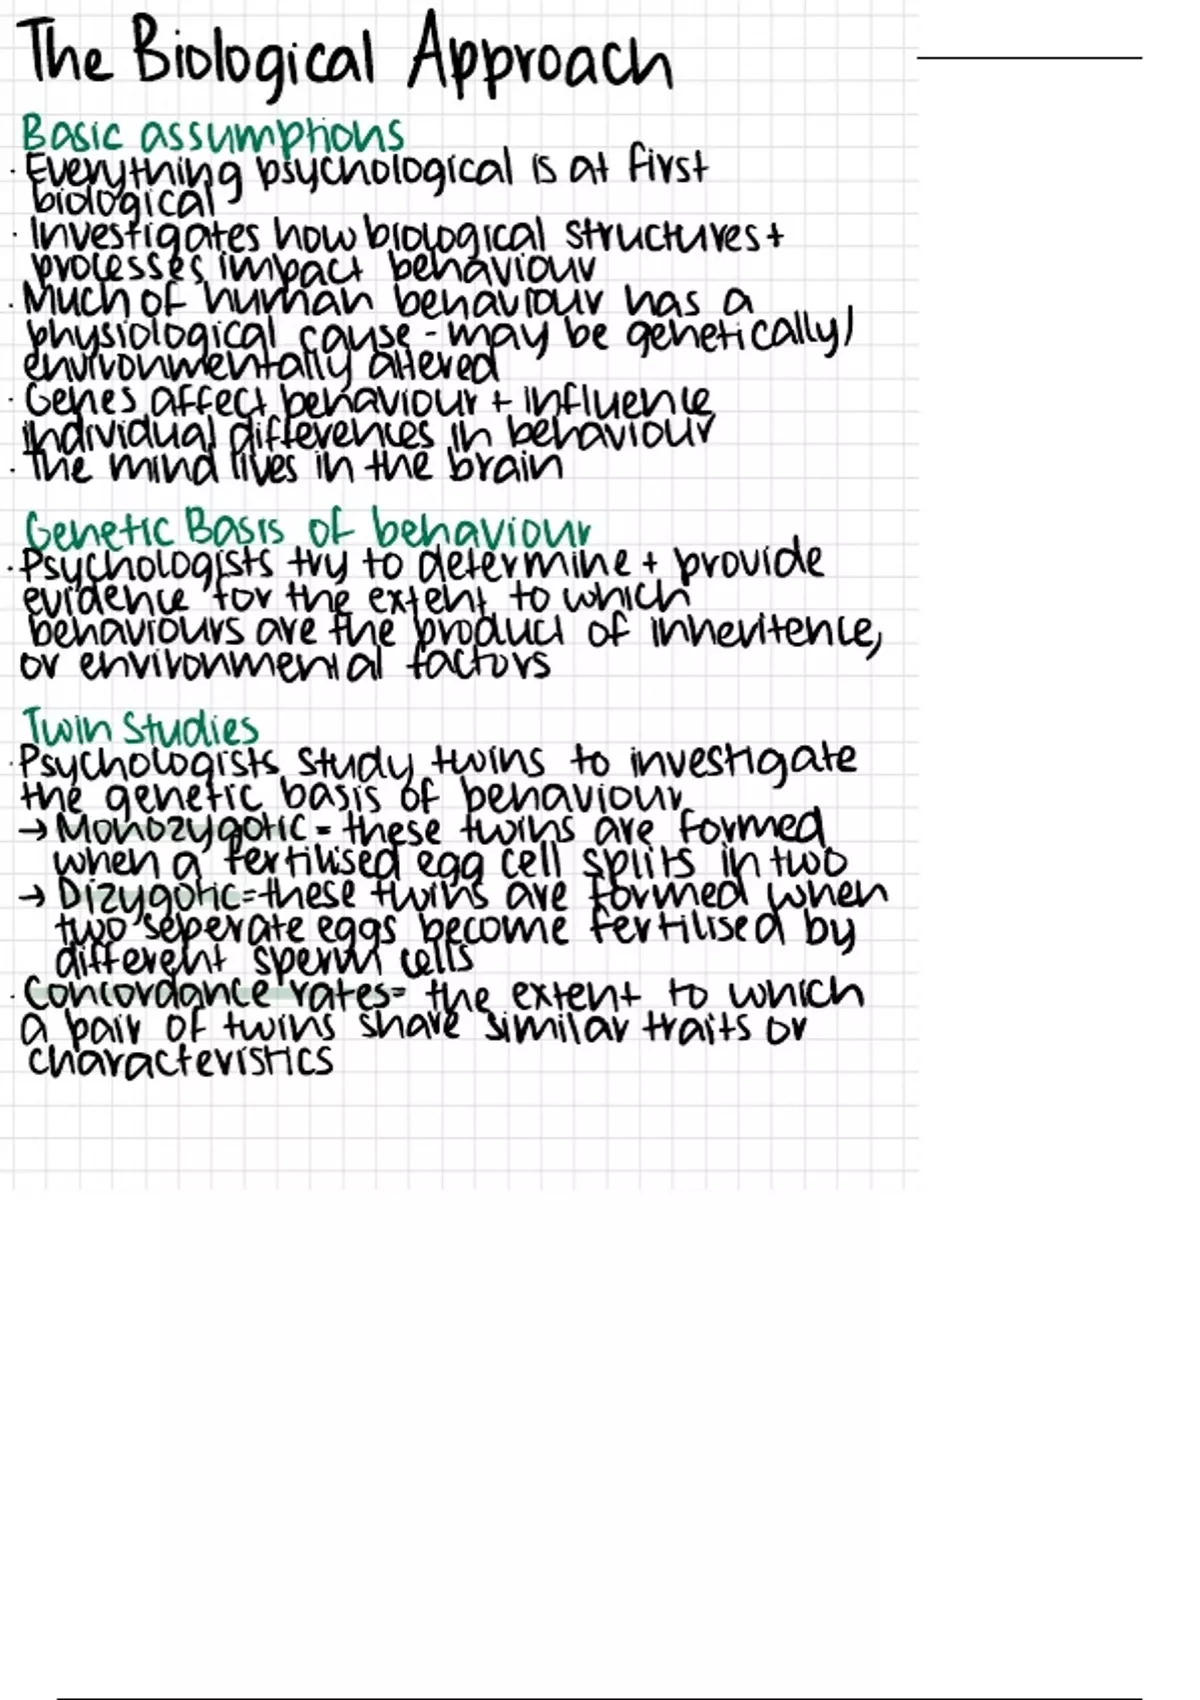 The Biological Approach
Basic assumptions
· Everything psychological is at first
biological
· Investigates how biological structures +
processes impact behaviour
· Much of human behaviour has a
physiological cause - may be genetically/
environmentally altered
· Genes affect behaviour + influence
individual differences in behaviour
· The mind lives in the brain
Genetic Basis of behaviour
· Psychologists try to determine + provide
evidence for the extent to which
behaviours are the product of inheritence,
or environmental factors
Twin Studies
· Psychologists study twins to investigate
the genetic basis of behaviour
→ Monozygotic = these twins are formed
when a fertilised egg cell splits in two
→ Dizygotic = these twins are formed when
two seperate eggs become fertilised by
different sperm cells
· Concordance rates = the extent to which
a pair of twins share similar traits or
characteristics